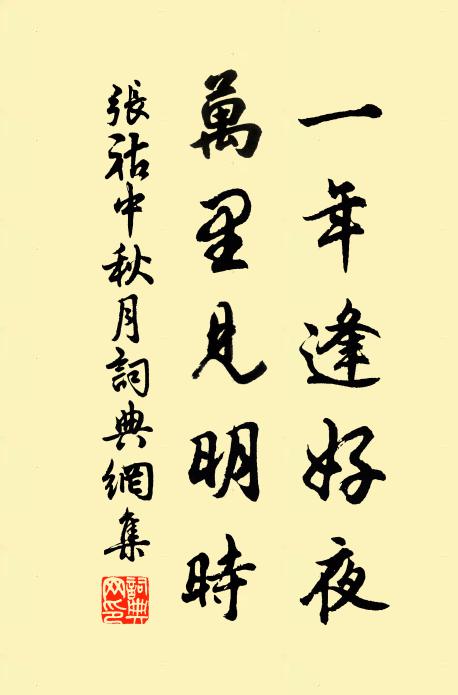 一年逢好夜
萬里見明時
張祜中秋月詞典網集
詞典網印